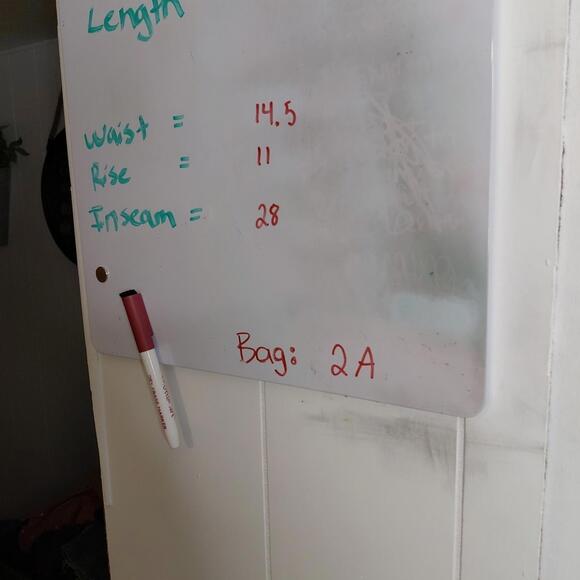 Length
Waist = 14.5
Rise = 11
Inseam = 28
Bag: 2A